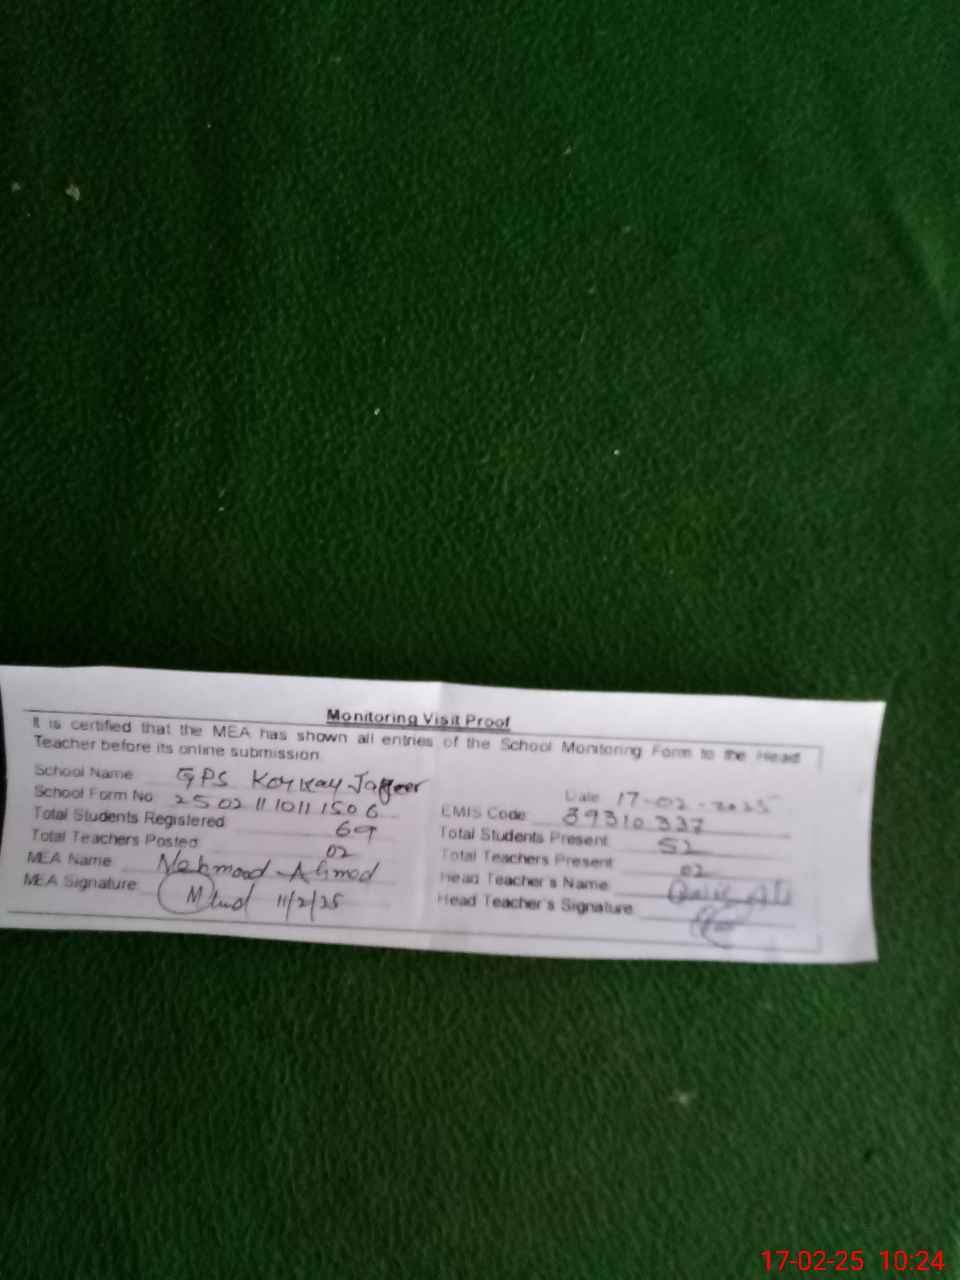 Monitoring Visit Proof
It is certified that the MEA has shown all entries of the School Monitoring Form to the Head
Teacher before its online submission.
School Name GPS Jageer
Date 17-02-2025
School Form No. 25021110111506
EMIS Code 39310337
Total Students Registered 69
Total Students Present 52
Total Teachers Posted 02
Total Teachers Present 02
MEA Name Mehmood Ahmad
Head Teacher's Name Ali
MEA Signature 11/2/25
Head Teacher's Signature
17-02-25 10:24